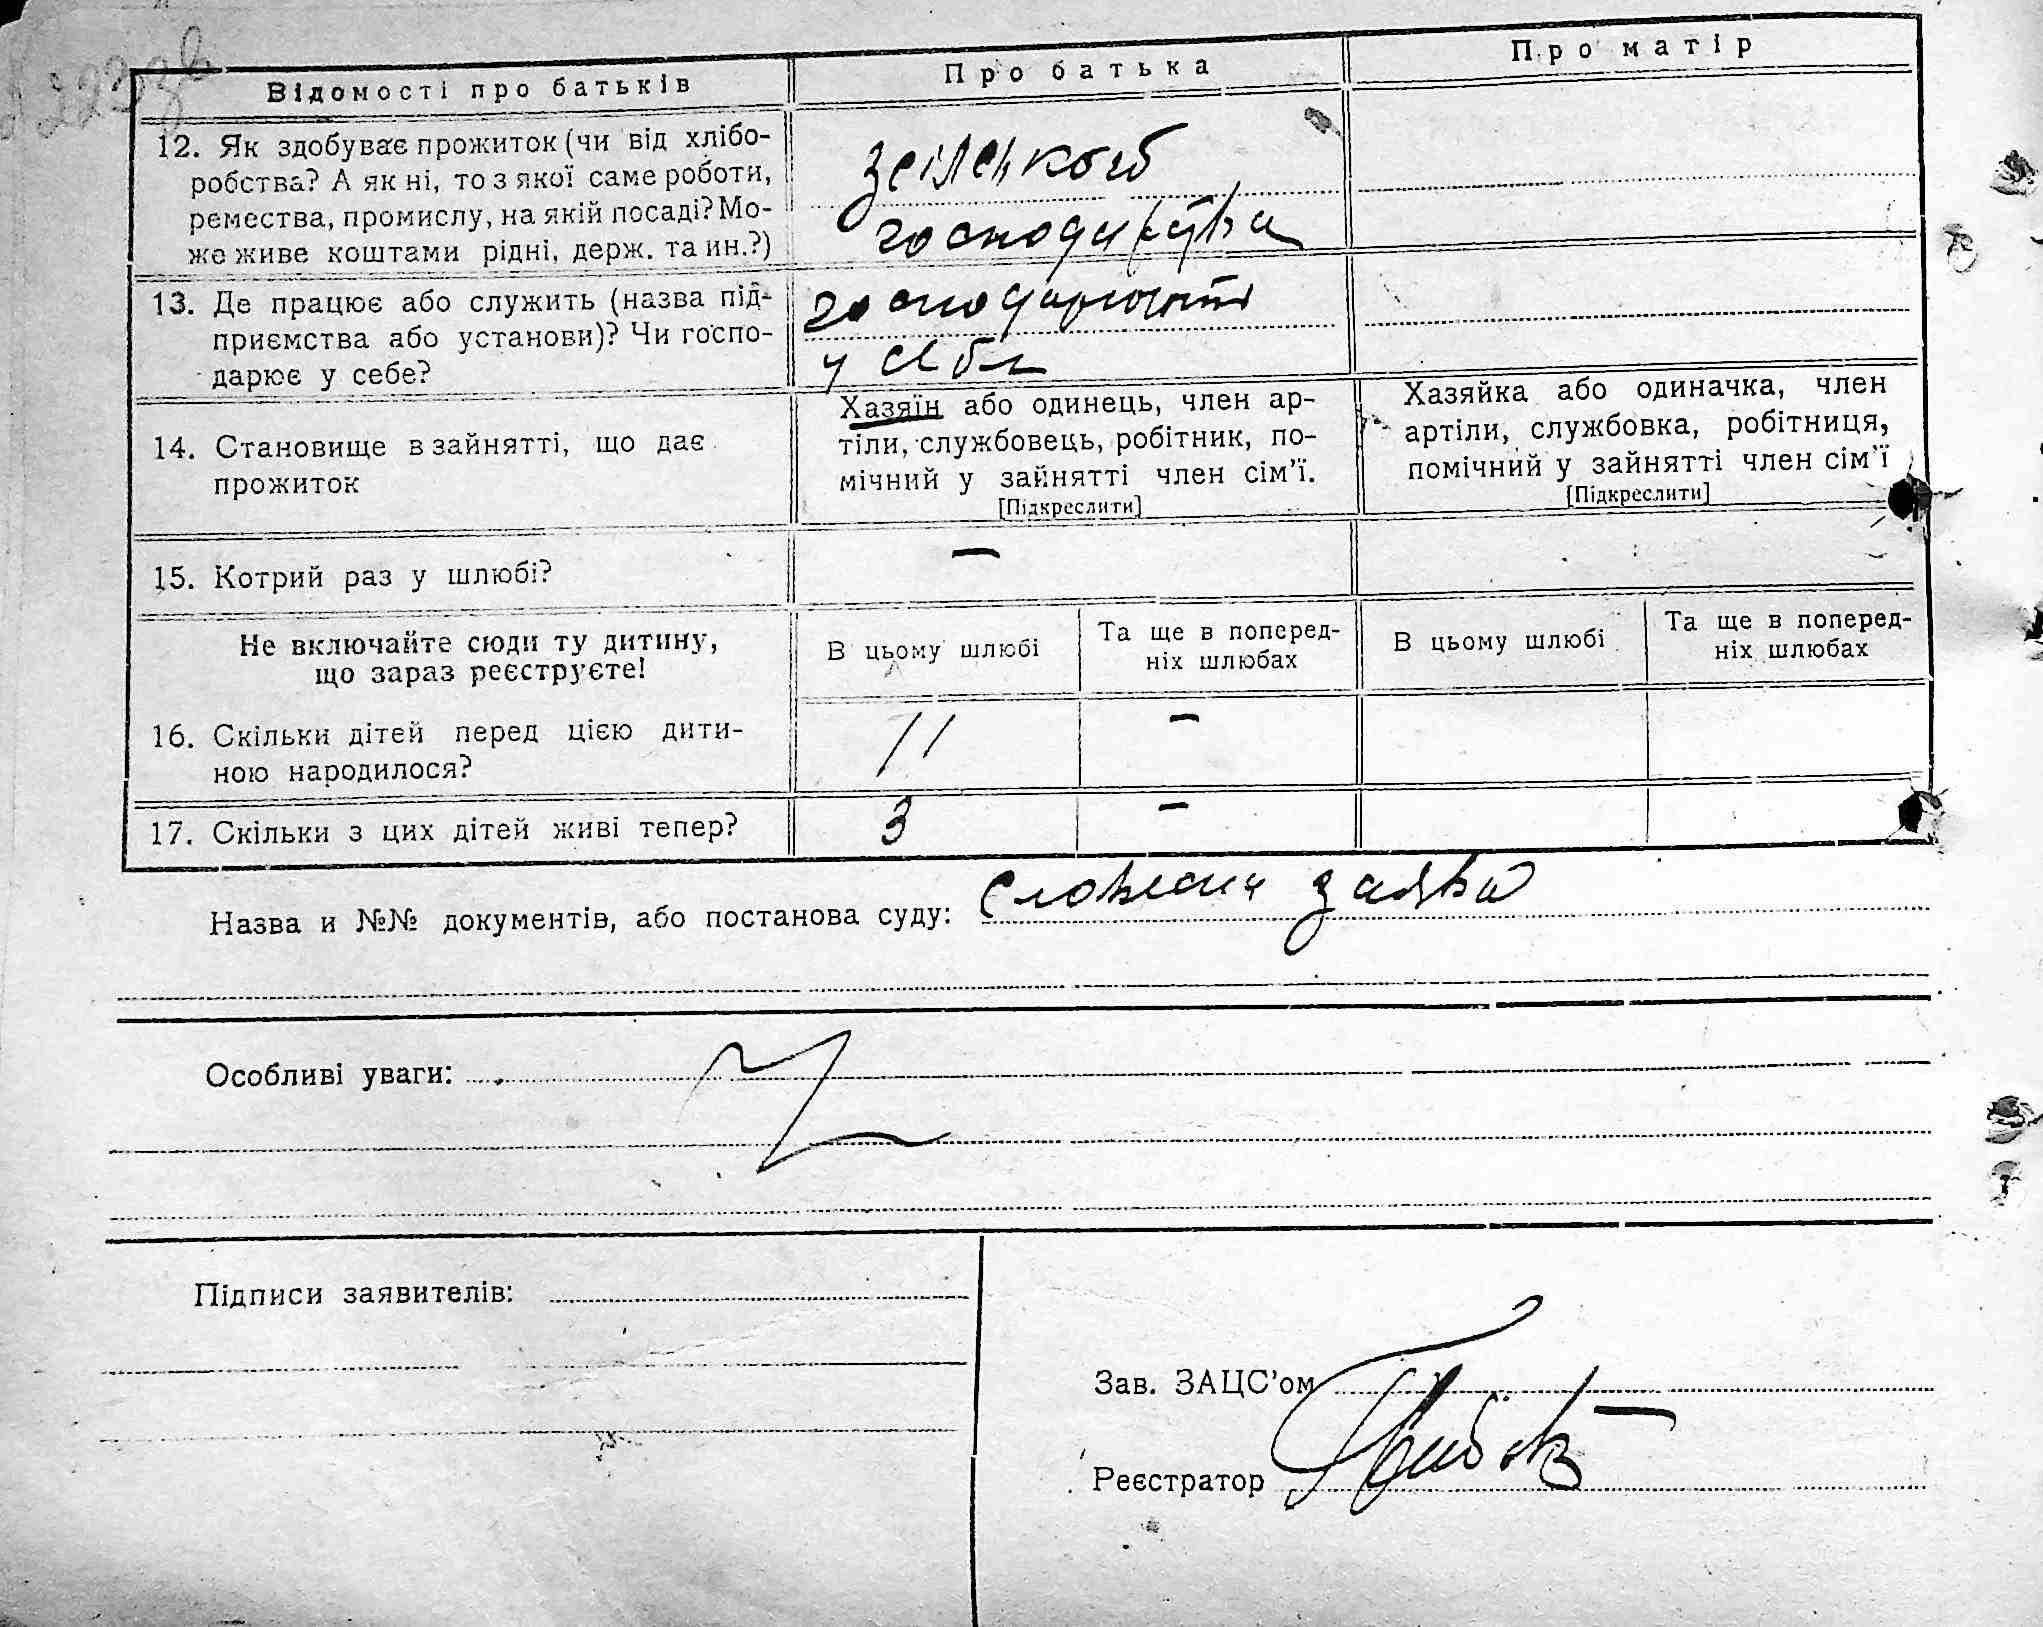 Відомості про батьків
Про батька
Про матір
12. Як здобуває прожиток (чи від хлібо-
робства? А як ні, то з якої саме роботи,
ремества, промислу, на якій посаді? Мо-
же живе коштами рідні, держ. та ин.?)
з сільського
господарства
13. Де працює або служить (назва під-
приємства або установи)? Чи госпо-
дарює у себе?
господарюють
у себе
14. Становище в зайнятті, що дає
прожиток
Хазяїн або одинець, член ар-
тіли, службовець, робітник, по-
мічний у зайнятті член сім'ї.
[Підкреслити]
Хазяйка або одиначка, член
артіли, службовка, робітниця,
помічний у зайнятті член сім'ї
[Підкреслити]
15. Котрий раз у шлюбі?
—
Не включайте сюди ту дитину,
що зараз реєструєте!
В цьому шлюбі
Та ще в поперед-
ніх шлюбах
В цьому шлюбі
Та ще в поперед-
ніх шлюбах
16. Скільки дітей перед цією дити-
ною народилося?
11
—
17. Скільки з цих дітей живі тепер?
3
—
Назва и №№ документів, або постанова суду: словесна заява
Особливі уваги:
Підписи заявителів:
Зав. ЗАЦС'ом
Реєстратор